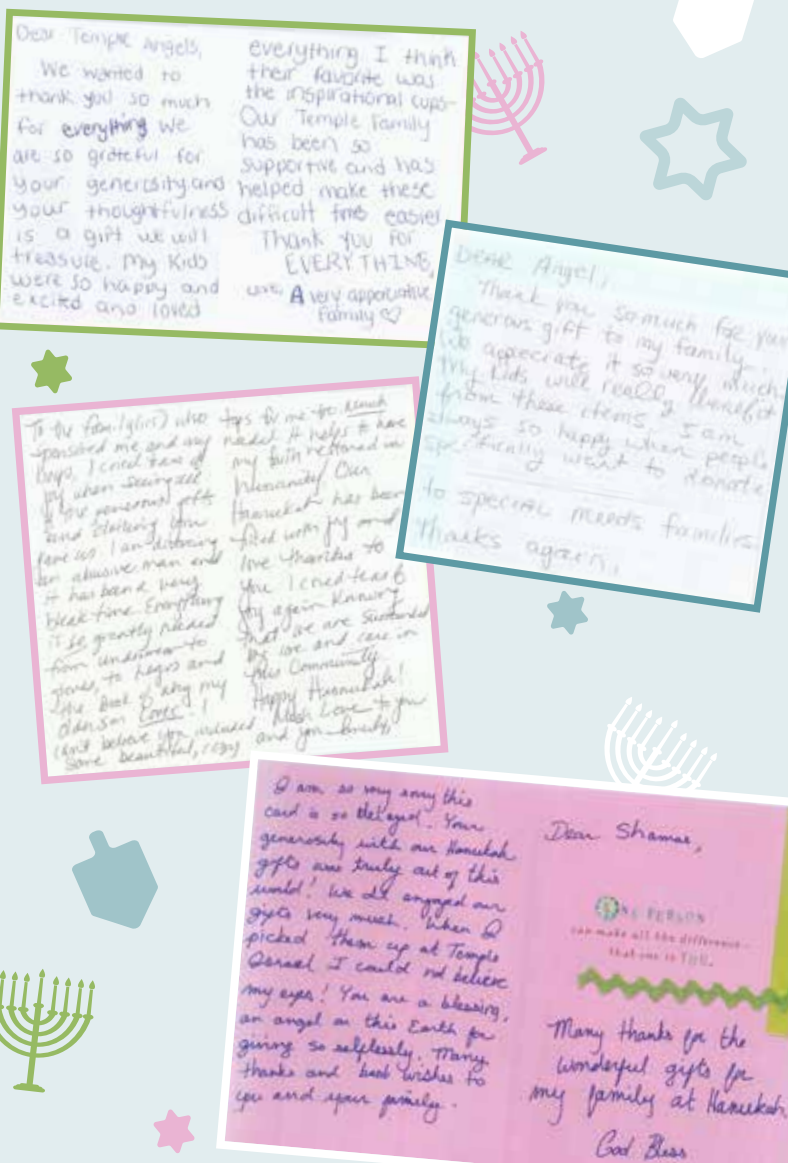 Dear Temple Angels,
We wanted to
thank you so much
for everything we
are so grateful for
your generosity and
your thoughtfulness
is a gift we will
treasure. My Kids
were so happy and
excited and loved
everything I think
their favorite was
the inspirational cups-
Our Temple Family
has been so
supportive and has
helped make these
difficult time easier
Thank you for
EVERYTHING,
Love, A very appreciative
family
Dear Angel,
Thank you so much for your
generous gift to my family.
We apprecrate it so very much.
My kids will really benefit
from these items. I am
always so happy when people
specifically want to donate
to special needs families.
Thanks again,
To the family(ies) who
sponsored me and my
boys, I cried tears of
joy when seeing all
of the generous gifts
and clothing you
gave us. I am divorcing
an abusive man and
it has been a very
bleak time. Everything
is so greatly needed
from underwear to
gloves, to legos and
the book of my
older son loves!! I
can't believe you included
some beautiful, cozy
tops for me too. Much
needed. It helps to have
my faith restored in
humanity. Our
Hanukah has been
filled with joy and
love thanks to
you. I cried tears of
joy again knowing
that we are surrounded
by love and care in
this Community.
Happy Hannukah!
Much Love to you
and your family,
I am so very sorry this
card is so delayed. Your
generosity with our Hanukah
gifts are truly out of this
world! We all enjoyed our
gifts very much. When I
picked them up at Temple
Israel I could not believe
my eyes! You are a blessing,
an angel on this Earth for
giving so selflessly. Many
thanks and best wishes to
you and your family.
Dear Shamas,
ONE PERSON
can make all the difference—
that one is YOU.
Many thanks for the
wonderful gifts for
my family at Hanukah
God Bless